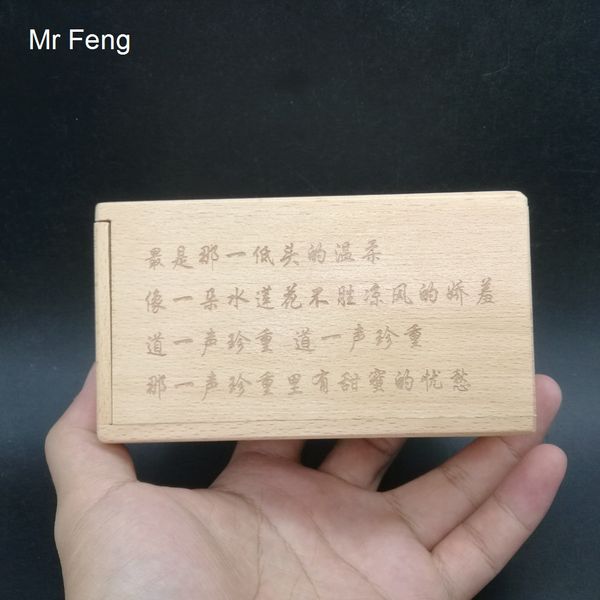 Mr Feng
最是那一低头的温柔
像一朵水莲花不胜凉风的娇羞
道一声珍重 道一声珍重
那一声珍重里有甜蜜的忧愁